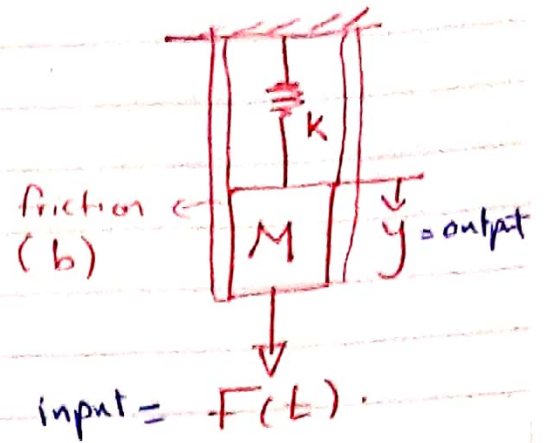 K
friction
(b)
M
y = output
input = F(t).